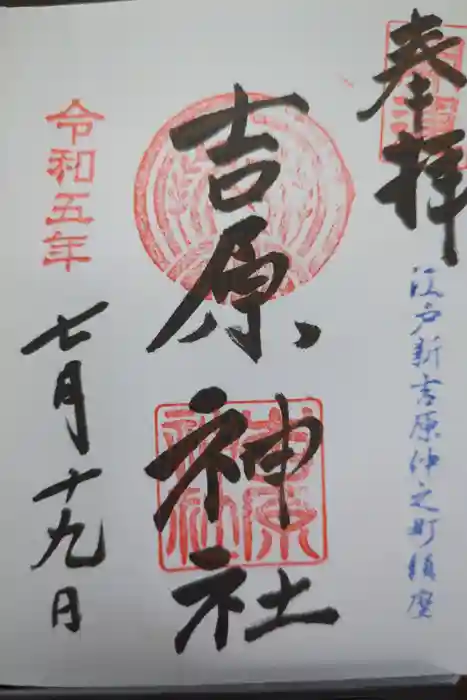 奉拝
江戸新吉原仲之町鎮座
吉原神社
吉原神社
令和五年
七月十九日